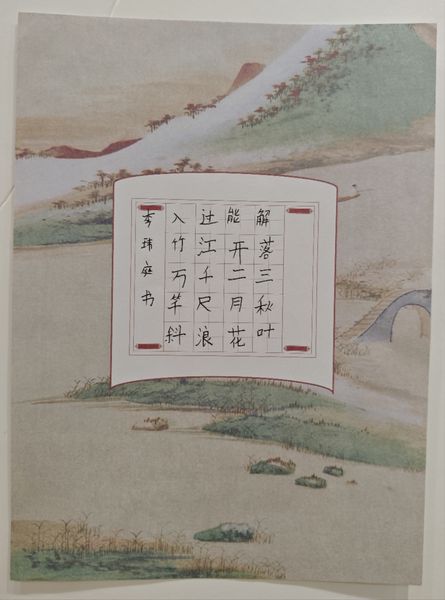 解落三秋叶
能开二月花
过江千尺浪
入竹万竿斜
李玮庭书